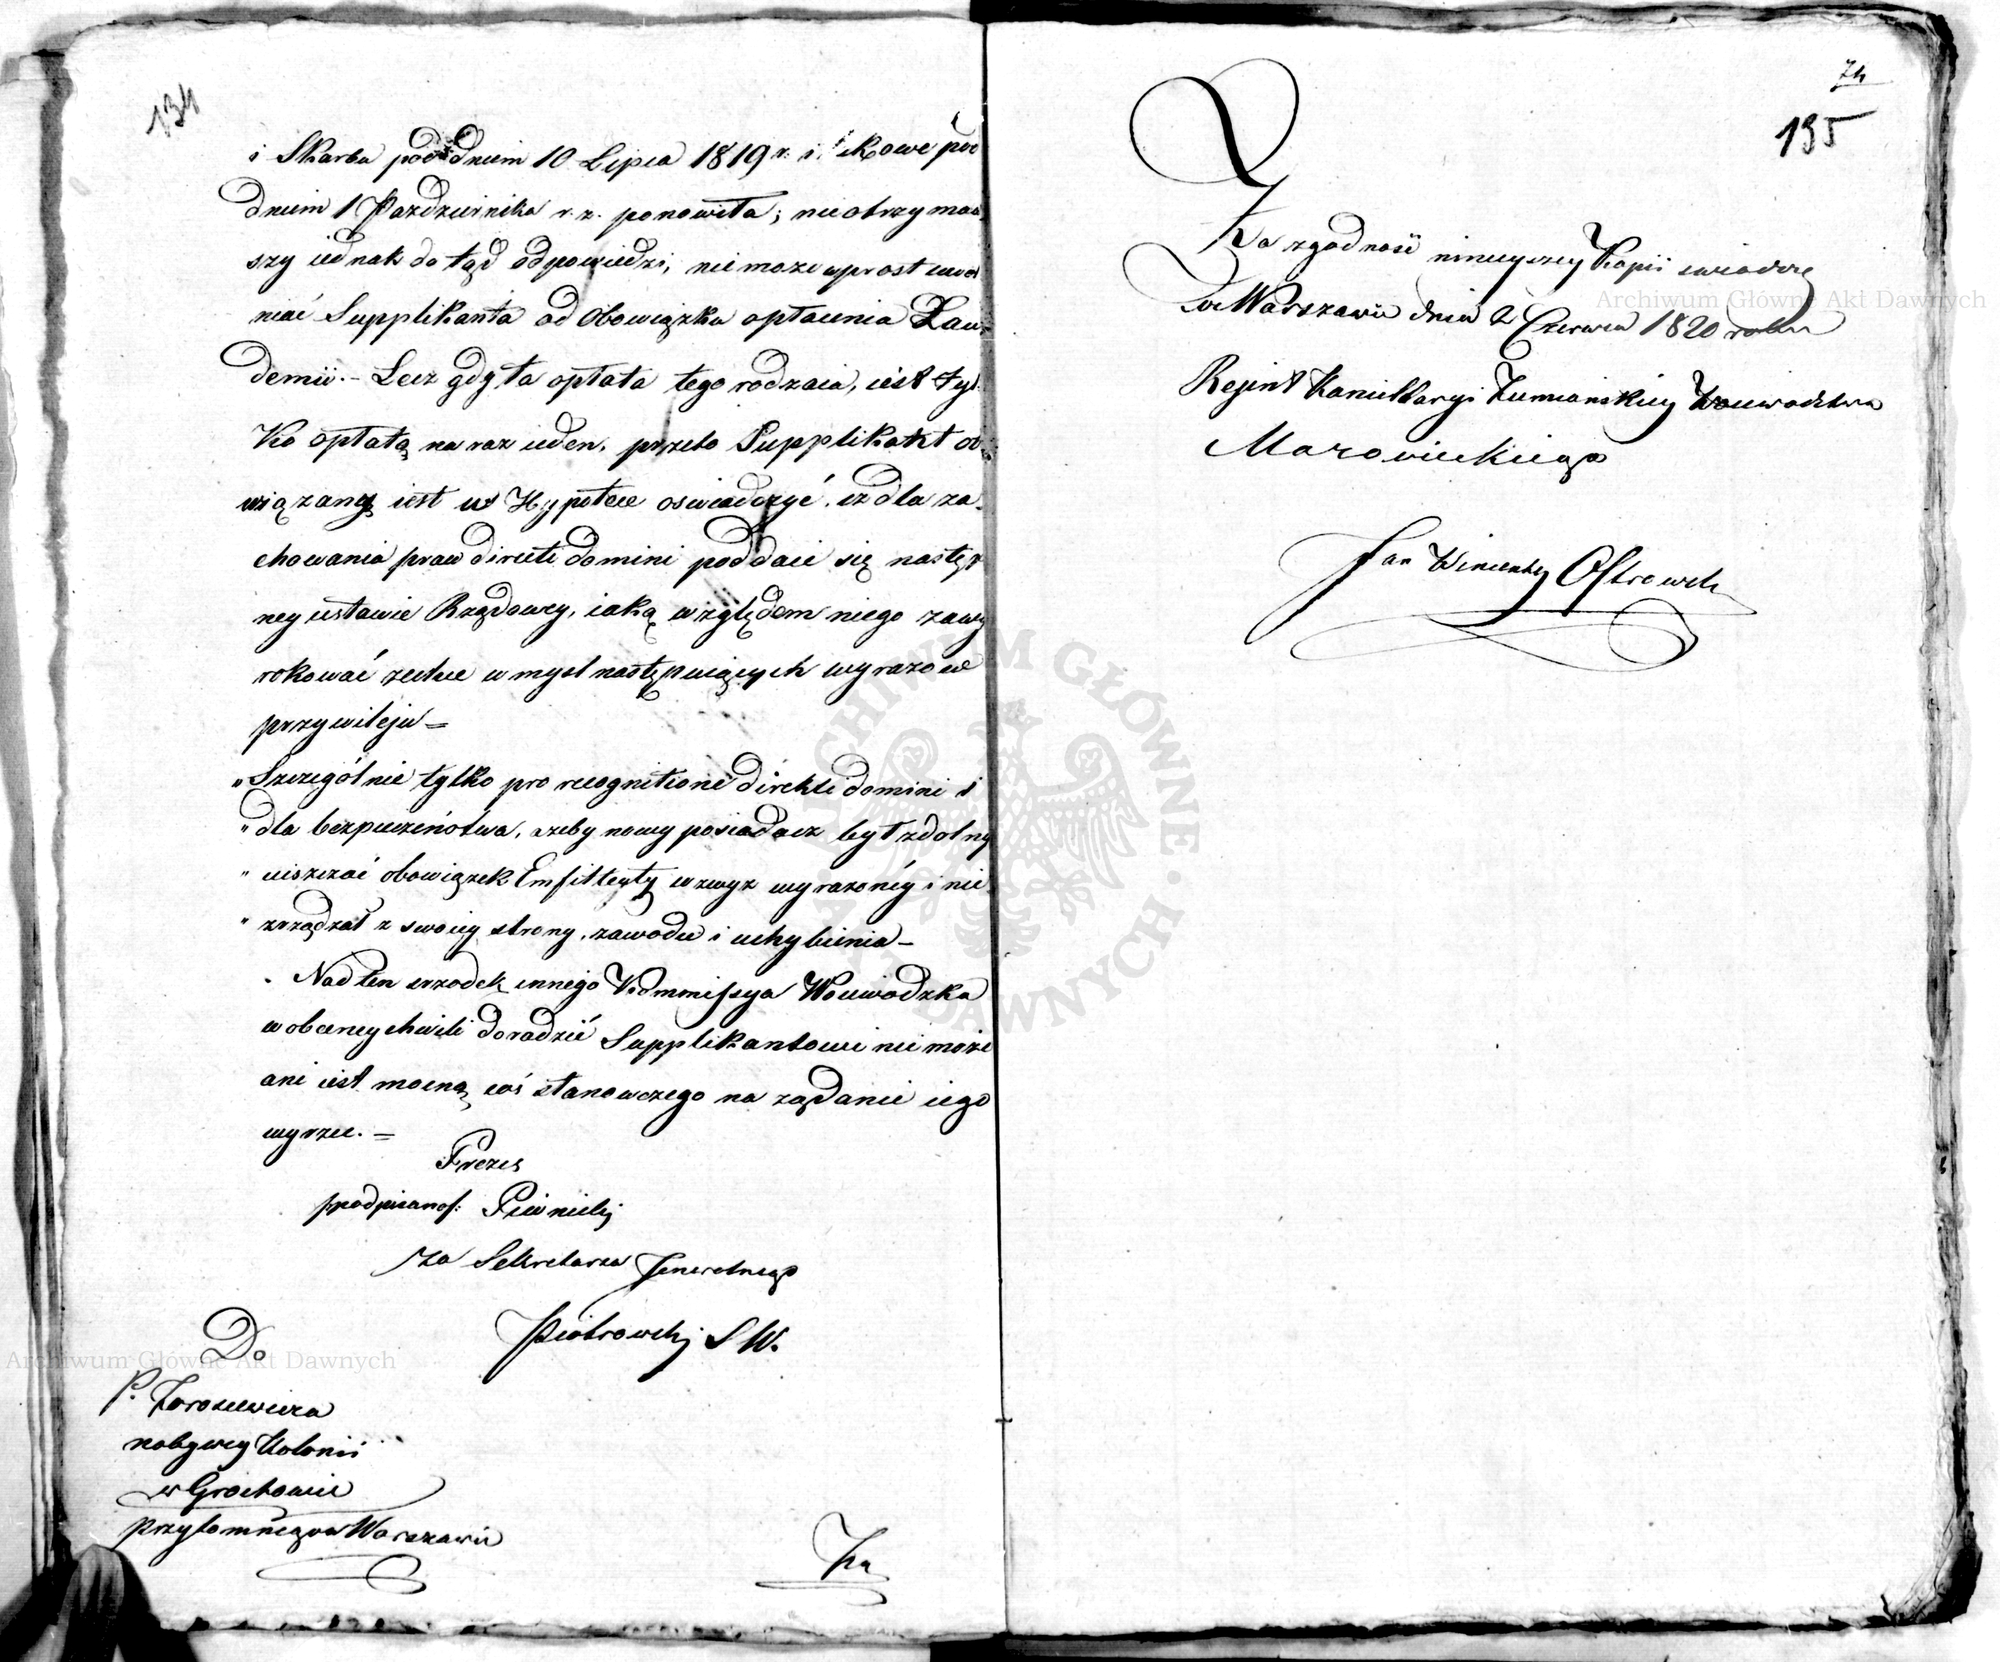 134
i Skarbu pod dniem 10 Lipca 1819 r. i takowe pod
dniem 1 Pazdziernika r. z. ponowiła; nieotrzymaw
szy iednak do tąd odpowiedzi, nie moze wprost uwol
niać Supplikanta od obowiązku opłacenia Lau-
demii. – Lecz gdy ta opłata tego rodzaia, iest tyl-
ko opłatą na raz ieden, przeto Supplikant obo-
wiązany iest w Hypotece oswiadczyć, iż dla za-
chowania praw directi domini poddaie się następ
ney ustawie Rządowey, iaką względem niego zawy
rokować zechce w mysl następuiących wyrazow
przywileju =
„ Szczególnie tylko pro recognitione direkti domini i
„ dla bezpieczeństwa, azeby nowy posiadacz był zdolny
„ uiszczać obowiązek Emfitteuty wzwyz wyrazonéy i nie
„ zrządzał z swoiey strony, zawodu i uchybienia –
Nad ten srzodek innego Kommissya Woiewodzka
w obecney chwili doradzić Supplikantowi nie może
ani iest mocną coś stanowczego na żądanie iego
wyrzec. =
Prezes
podpisano: Piwnicki
za Sekretarza Jeneralnego
Piotrowski S W.
Do
P. Jaroszewicza
nabywcy Kolonii
w Grochowie
przytomnego w Warszawie
Za
74
135
Za zgodność ninieyszey Kopii swiadczę
w Warszawie dnia 2 Czerwca 1820 roku
Rejent Kancellaryi Ziemianskiey Woiewodztwa
Mazowieckiego
Jan Wincenty Ostrowski
Archiwum Główne Akt Dawnych
Archiwum Główne Akt Dawnych
ARCHIWUM GŁÓWNE · AKT DAWNYCH ·